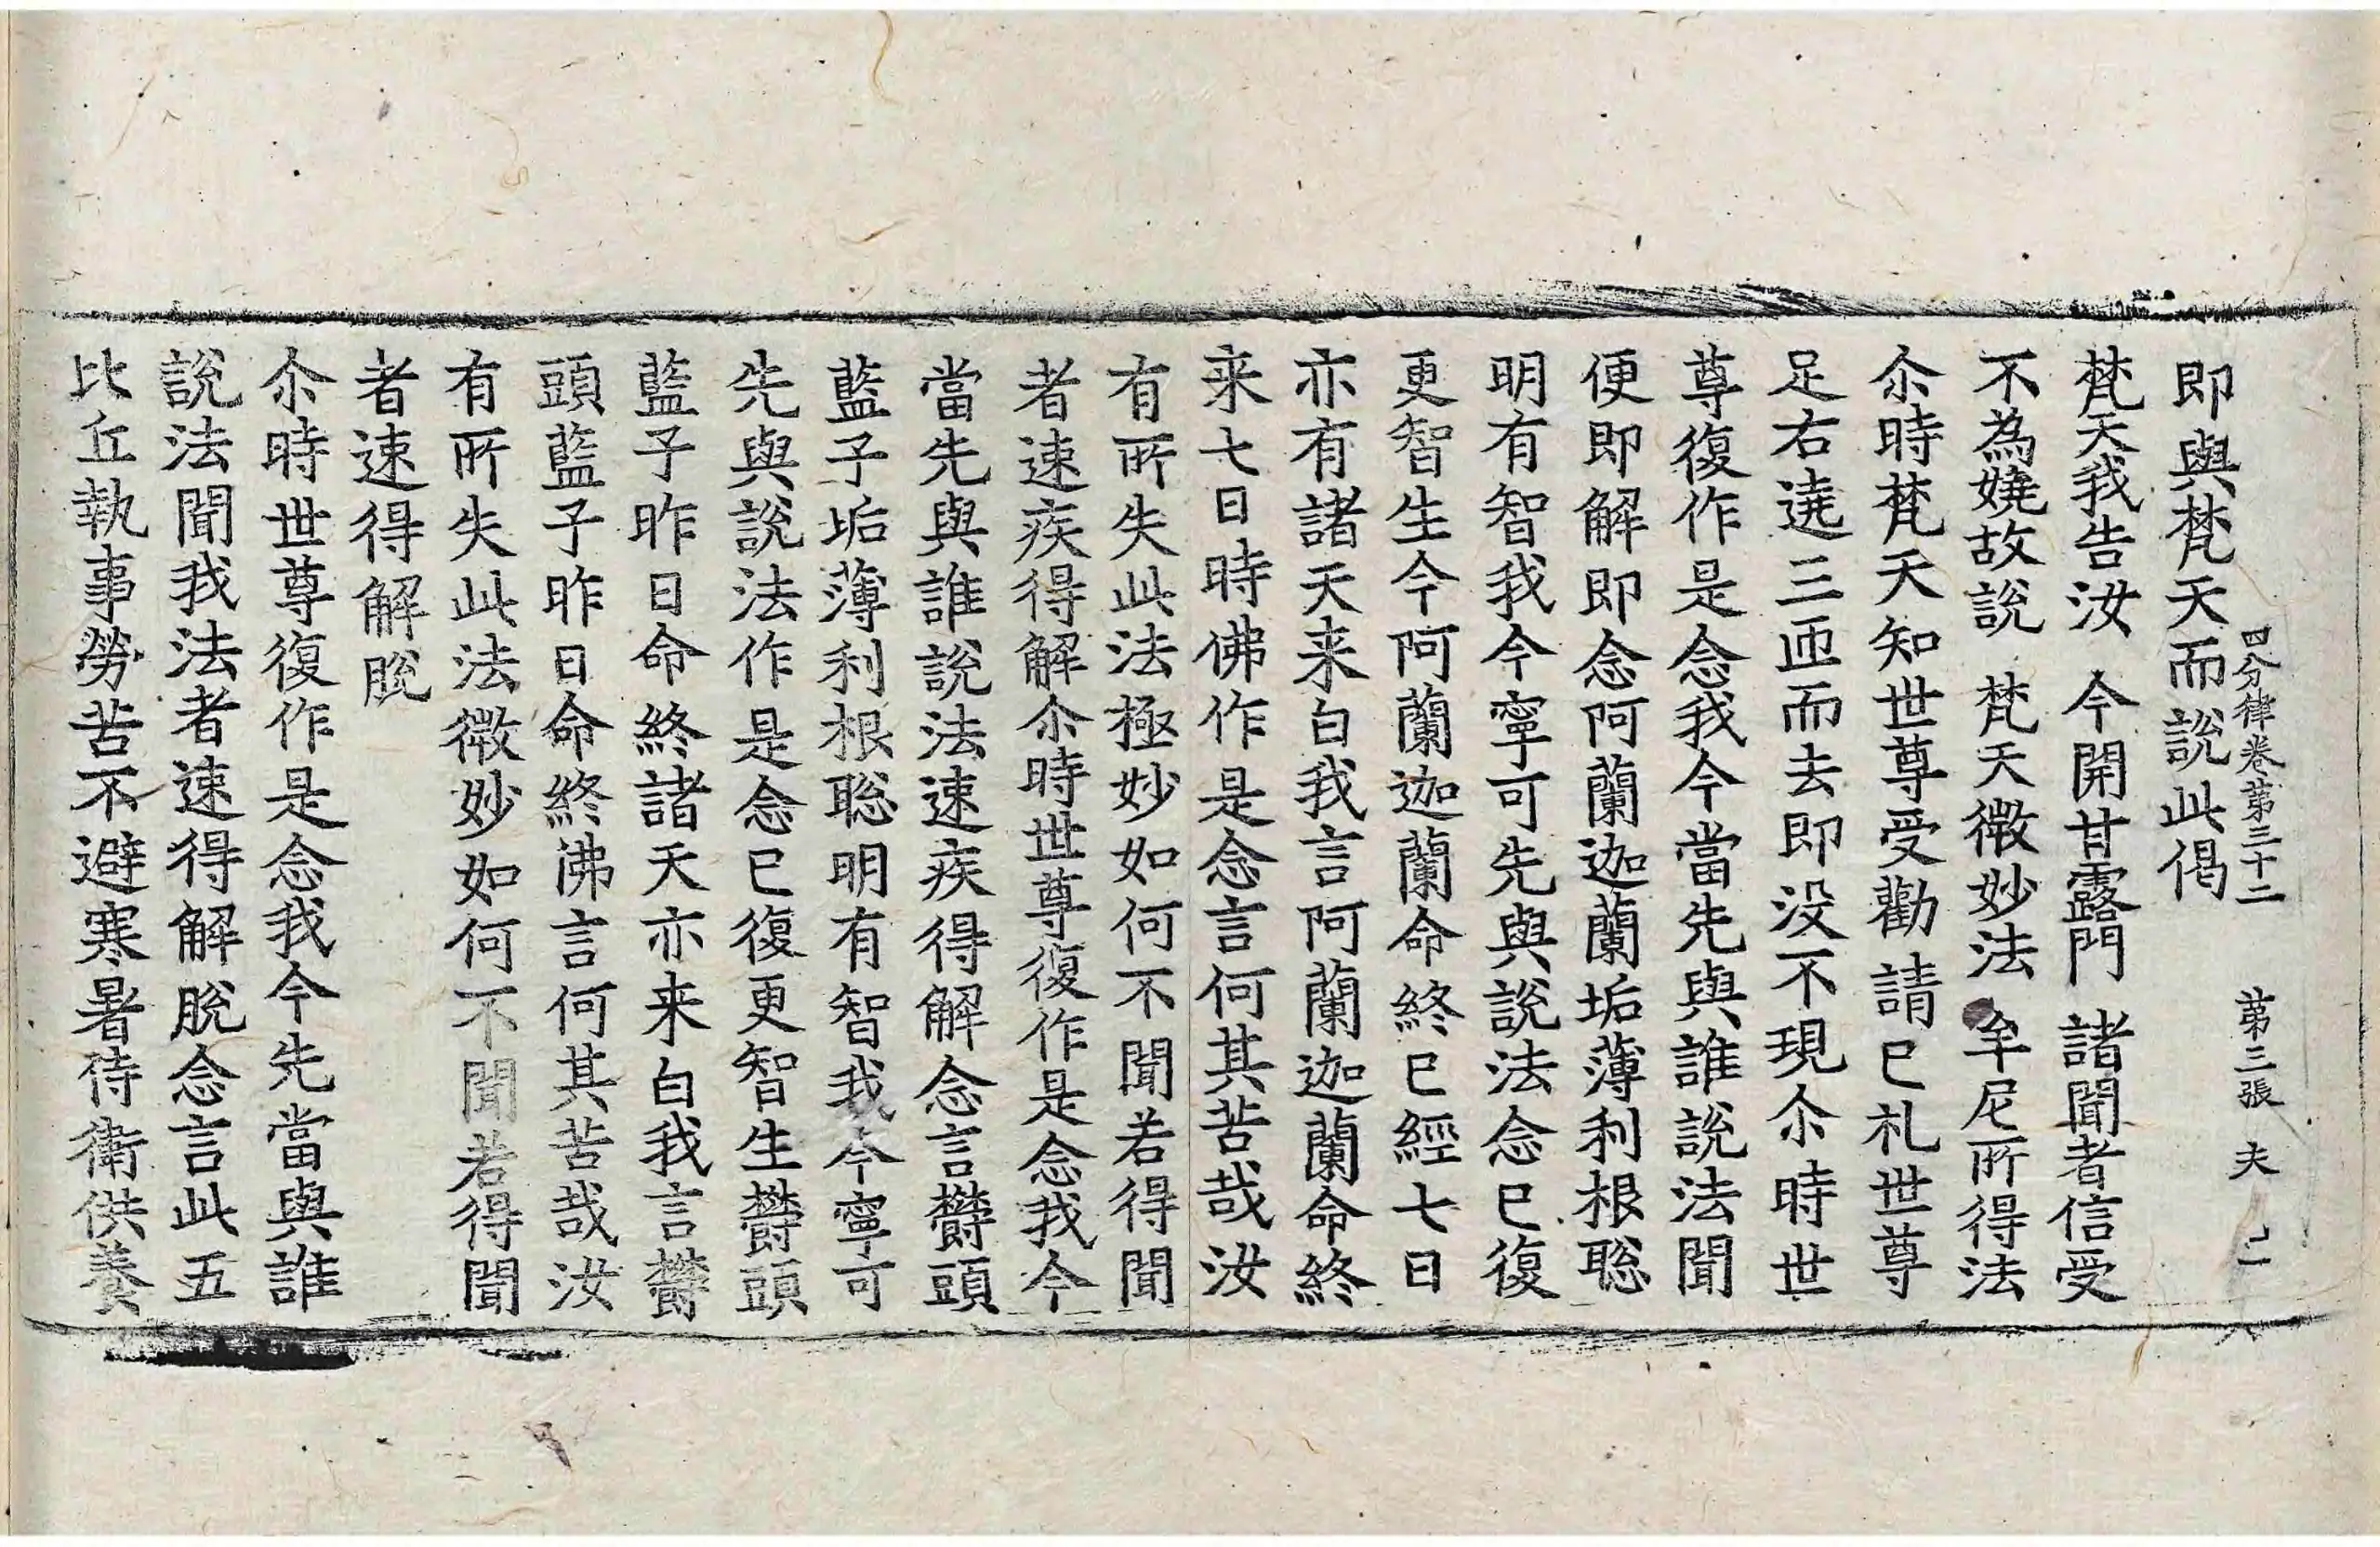 四分律卷第三十二　第三張　夫
即與梵天而說此偈
梵天我告汝　今開甘露門　諸聞者信受
不為嬈故說　梵天微妙法　牟尼所得法
尒時梵天知世尊受勸請已礼世尊
足右遶三匝而去即没不現尒時世
尊復作是念我今當先與誰說法聞
便即解即念阿蘭迦蘭垢薄利根聡
明有智我今寧可先與說法念已復
更智生今阿蘭迦蘭命終已經七日
亦有諸天来白我言阿蘭迦蘭命終
来七日時佛作是念言何其苦哉汝
有所失此法極妙如何不聞若得聞
者速疾得解尒時世尊復作是念我今
當先與誰說法速疾得解念言欝頭
藍子垢薄利根聡明有智我今寧可
先與說法作是念已復更智生欝頭
藍子昨日命終諸天亦来白我言欝
頭藍子昨日命終佛言何其苦哉汝
有所失此法微妙如何不聞若得聞
者速得解脫
尒時世尊復作是念我今先當與誰
說法聞我法者速得解脫念言此五
比丘執事勞苦不避寒暑侍衛供養